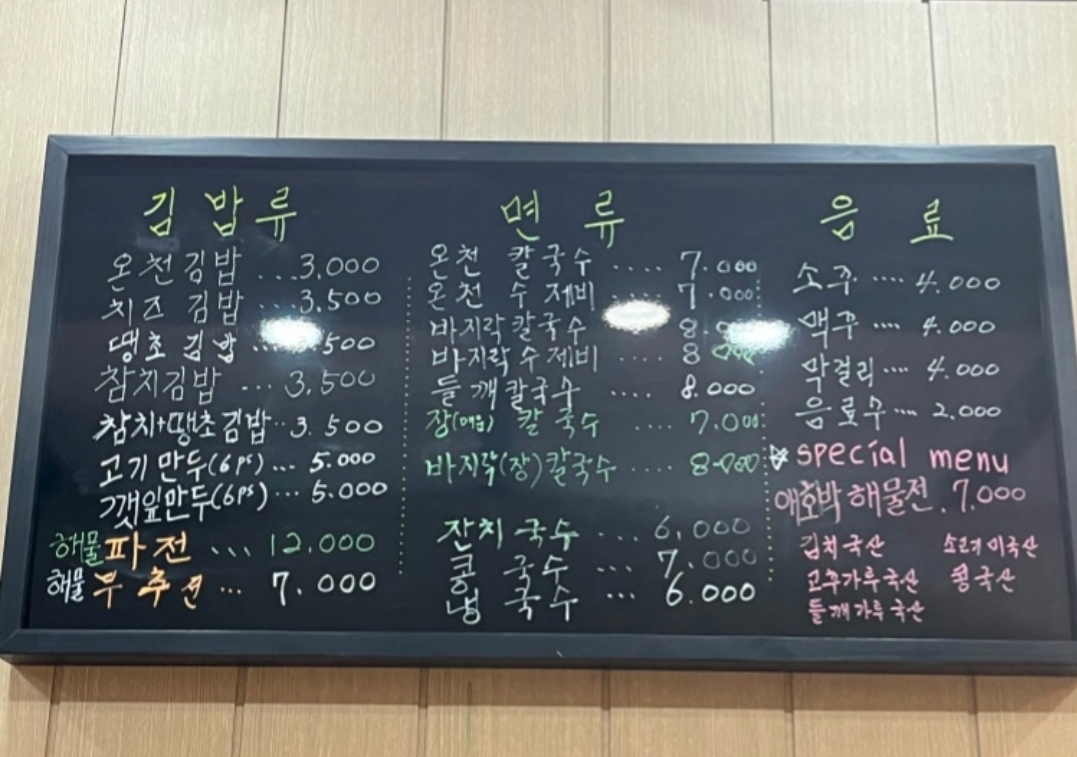 김밥류
온천김밥 ...3,000
치즈 김밥 ...3,500
땡초 김밥 .... 500
참치김밥 ... 3,500
참치+땡초김밥.. 3.500
고기만두(6ps) ... 5.000
깻잎만두(6ps) ... 5.000
해물파전 .... 12,000
해물부추전 ... 7.000
면류
온천 칼국수 .... 7.000
온천 수제비 .... 7.000
바지락칼국수 .... 8.000
바지락수제비 .... 8.000
들깨칼국수 .... 8.000
장(매운) 칼국수 .... 7.000
바지락(장)칼국수 .... 8.000
잔치국수 ... 6,000
콩국수 ... 7.000
냉국수 ... 6.000
음료
소주 .... 4.000
맥주 .... 4.000
막걸리 .... 4.000
음료수 .... 2.000
special menu
애호박해물전. 7.000
김치국산 소고기미국산
고추가루국산 콩국산
들깨가루국산